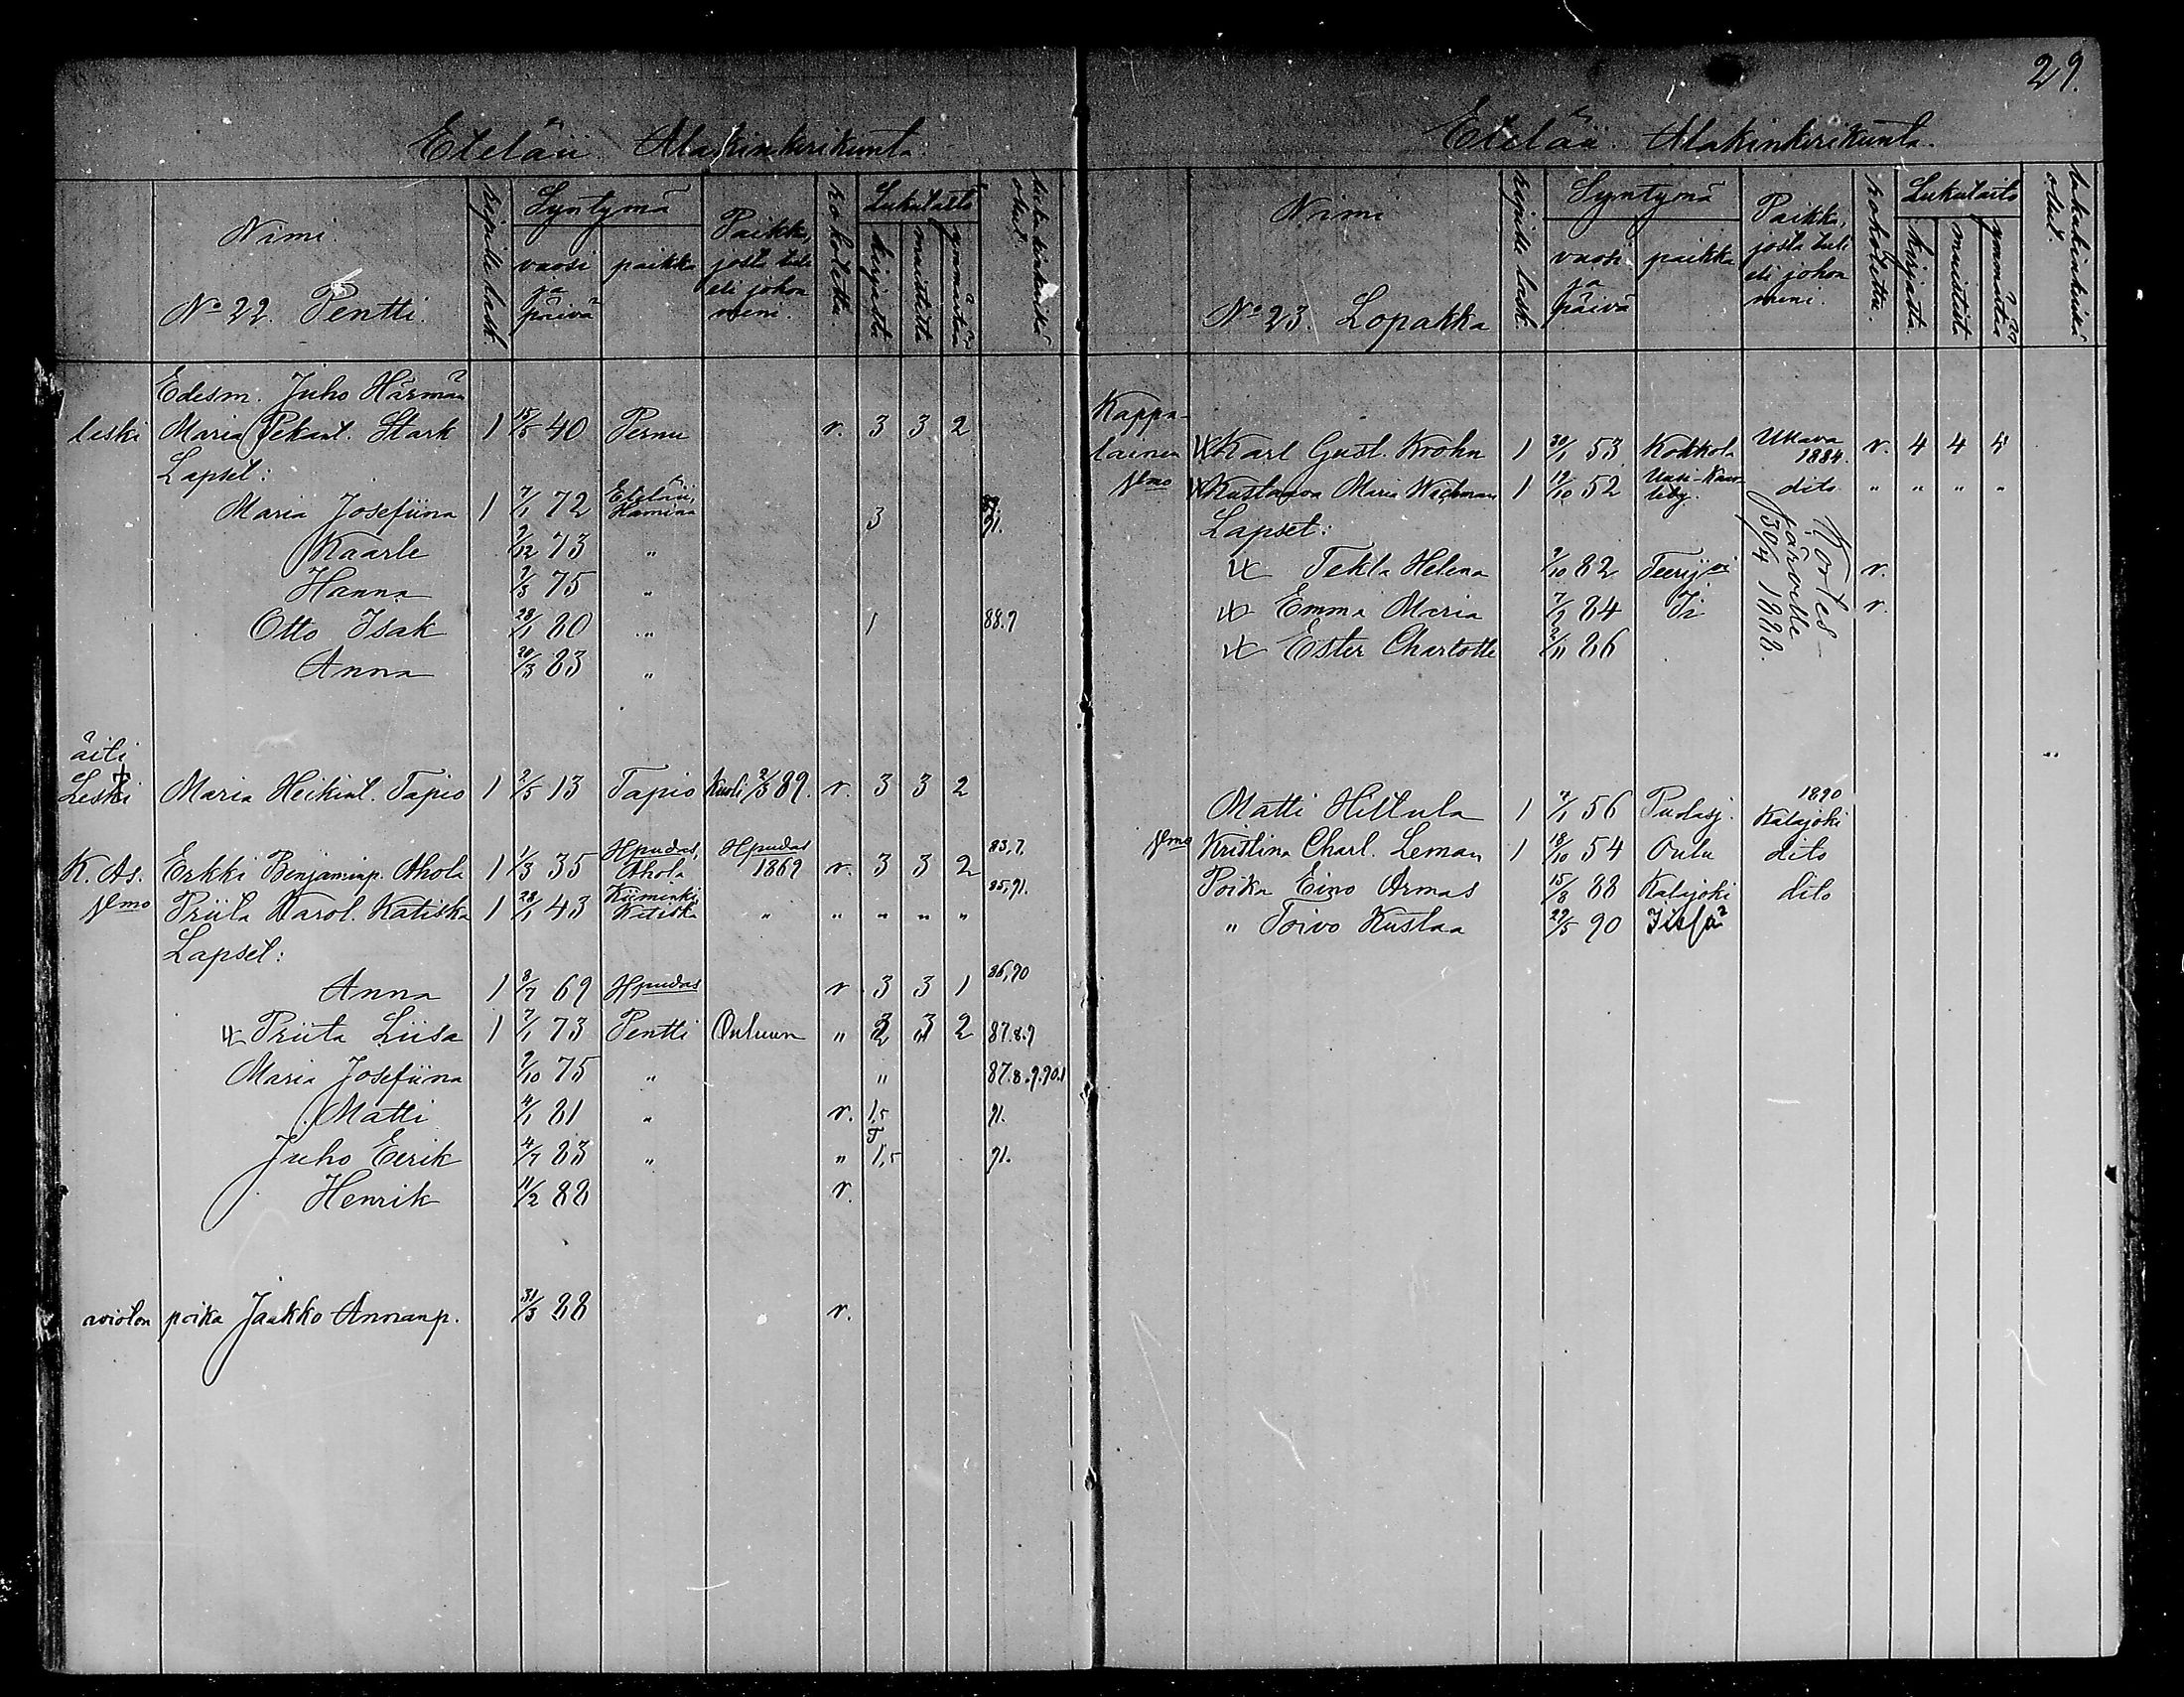 29.
Eteläii Alakinkerikunta.
Nimi.
No 22. Pentti.
ripille lask.
Syntymä
vuosi ja päivä
paikka
Paikka, josta tuli eli johon meni.
rokotettu.
Lukutaito
kirjasta
muistista
ymmärtää
lukukinkerissä ollut.
Edesm. Juho Härmän
leski Maria Pekant. Stark 1 15/5 40 Pernu r. 3 3 2
Lapset:
Maria Josefiina 1 7/1 72 Eteläii, Hamina 3 91.
Kaarle 2/12 73 "
Hanna 7/3 75 "
Otto Isak 28/1 80 " 1 88.9
Anna 20/3 83 "
äiti
Leski Maria Heikint. Tapio 1 2/5 13 Tapio Kuoli 2/3 89. r. 3 3 2
K. As. Erkki Benjaminp. Ahola 1 1/3 35 Hpudas, Ahola Hpudas 1869 r. 3 3 2 83,7.
Vmo Priita Karol. Katiska 1 28/1 43 Kiiminki, Katiska " " " " " 85,91.
Lapset:
Anna 1 8/7 69 Hpudas r. 3 3 1 86,90
Priita Liisa 1 7/1 73 Pentti Ouluun " 3 3 2 87.8.9
Maria Josefiina 9/10 75 " " 87.8.9.90.1
Matti 4/1 81 " r. 1,5 91.
Juho Eerik 4/7 83 " " 1,5 91.
Henrik 11/2 88 r.
avioton poika Jaakko Annanp. 31/3 88 r.
Eteläii Alakinkerikunta.
Nimi
No 23. Lopakka
ripille lask.
Syntymä
vuosi ja päivä
paikka
Paikka, josta tuli eli johon meni.
rokotettu.
Lukutaito
kirjasta.
muistista
ymmärtää
lukukinkerissä ollut.
Kappa-
lainen Karl Gust. Krohn 1 30/1 53 Kokkola Utava 1884. r. 4 4 4
Vmo Kustaava Maria Wachman 1 19/10 52 Uusi-Kaar-leby. dito " " " "
Lapset:
Tekla Helena 9/10 82 Teerijvi r.
Emma Maria 7/9 84 Ii r.
Ester Charlotte 2/11 86
Kortes-järvelle 30/4 1888.
Matti Hiltula 1 7/1 56 Pudasj. 1890 Kalajoki
Vmo Kristina Charl. Leman 1 18/10 54 Oulu dito
Poika Eino Armas 15/8 88 Kalajoki dito
" Toivo Kustaa 29/5 90 Iissä